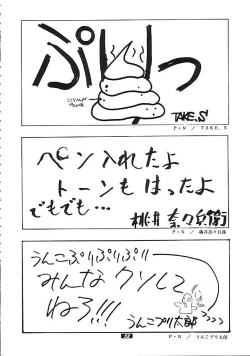 ぷりっ
TAKE.S'
P・N / TAKE, S
ペン入れたよ
トーンもはったよ
でもでも…
桃井奈々兵衛
P・N / 桃井奈々兵衛
うんこぷりぷりぷり
みんなクソして
ねろ!!!
うんこプリ太郎
P・N / うんこプリ太郎
52